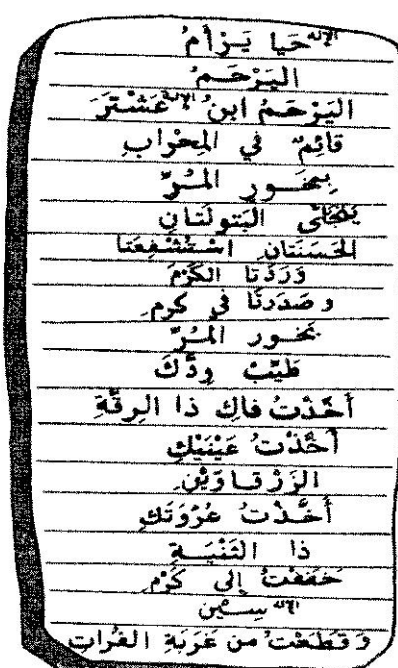 الإله حَيا يَرْأمُ
اليَرْحَمُ
اليَرْحَمُ ابنُ الإلهة عَشْتَرَ
قائِمٌ في المِحْرابِ
بِبَخــورِ المُــرِّ
البَتولَتانِ
الحَسَنَتانِ اسْتَشْفَعَتا
وَرَدَتا الكَرْمَ
وصَدَرتَا في كرمِ
بَخــور المُــرِّ
طَيِّبٌ وِدُّكَ
أَخَذْتُ فاكِ ذا الرِقَّةِ
أَخَذْتُ عَيْنَيْكِ
الزَرْقــاوَيْنِ
أَخَذْتُ عُرْوَتَكِ
ذا الثَنْيَــةِ
خَفَفْتُ إلى كَرْمِ
الإله ســين
وَقَطَعْتُ من غَرَبَةِ الفُراتِ